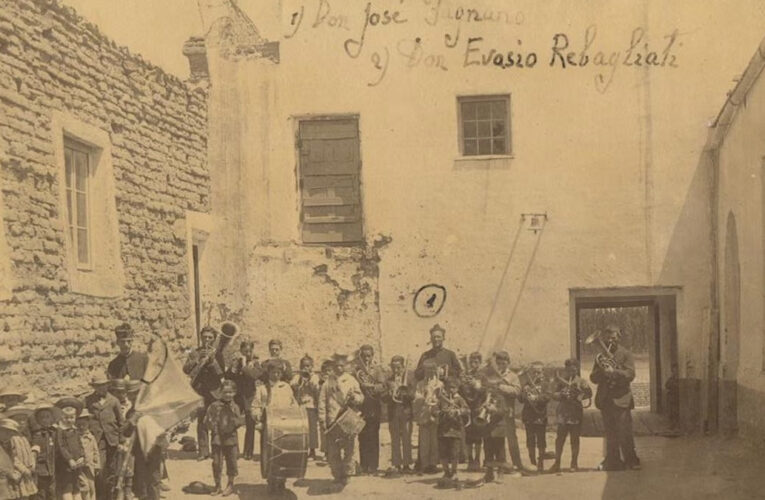 1) Don José Fagnano
2) Don Evasio Rebagliati
1